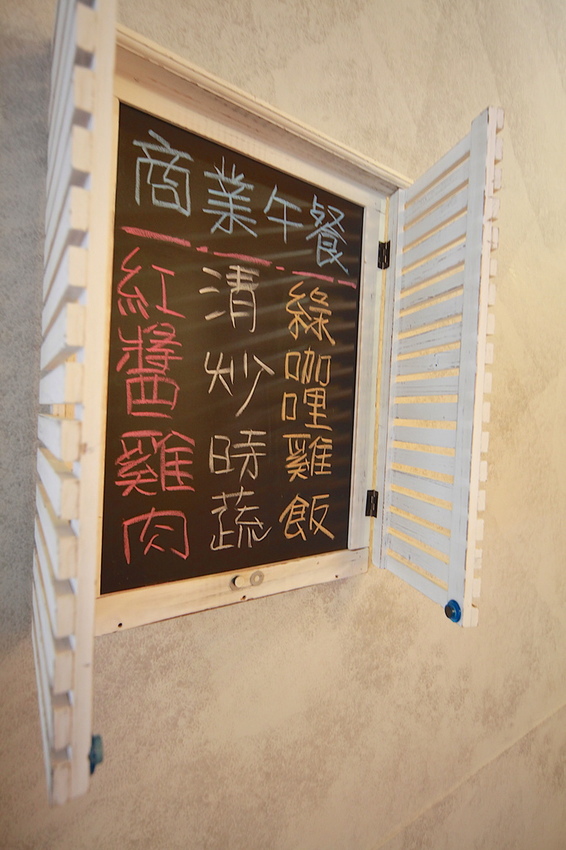 商業午餐
綠咖哩雞飯
清炒時蔬
紅醬雞肉